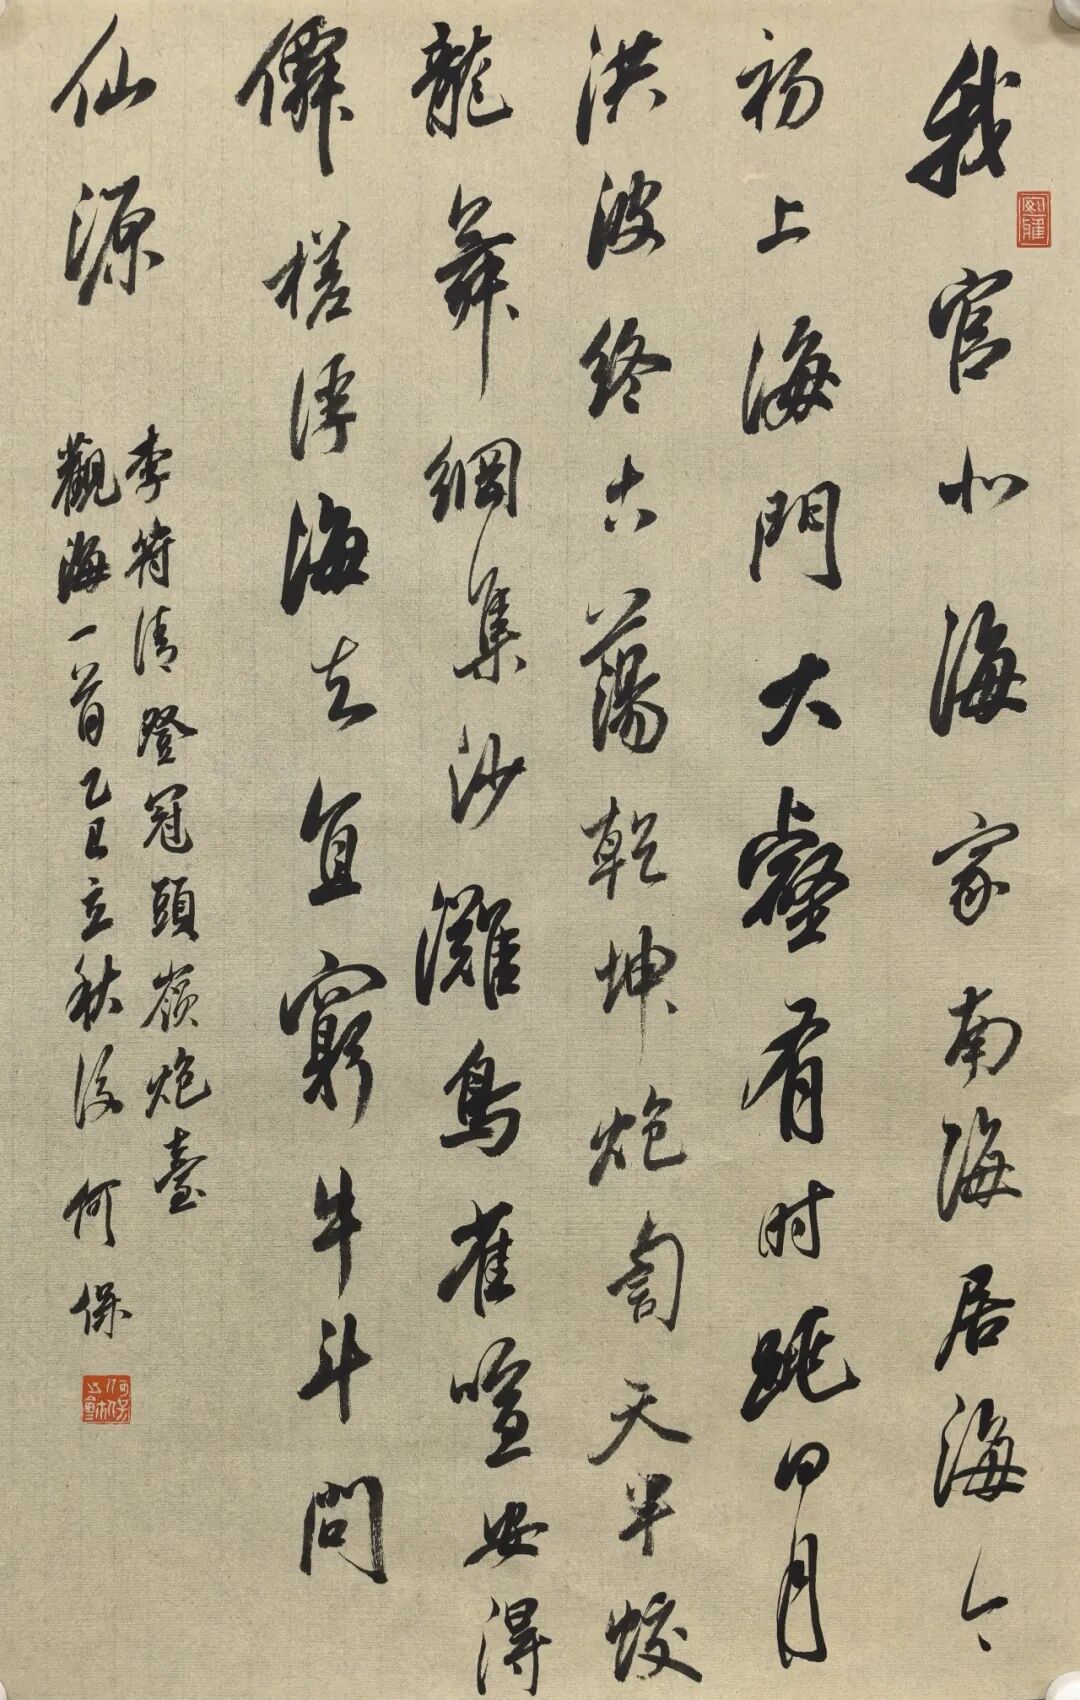 我官北海家南海居海今
初上海門大壑有时跳日月
洪波终古蕩乾坤炮訇天半蛟
龍舞網集沙灘鳥雀喧安得
僊槎浮海去直窮牛斗問
仙源
李符清登冠頭嶺炮臺
觀海一首乙巳立秋後何保